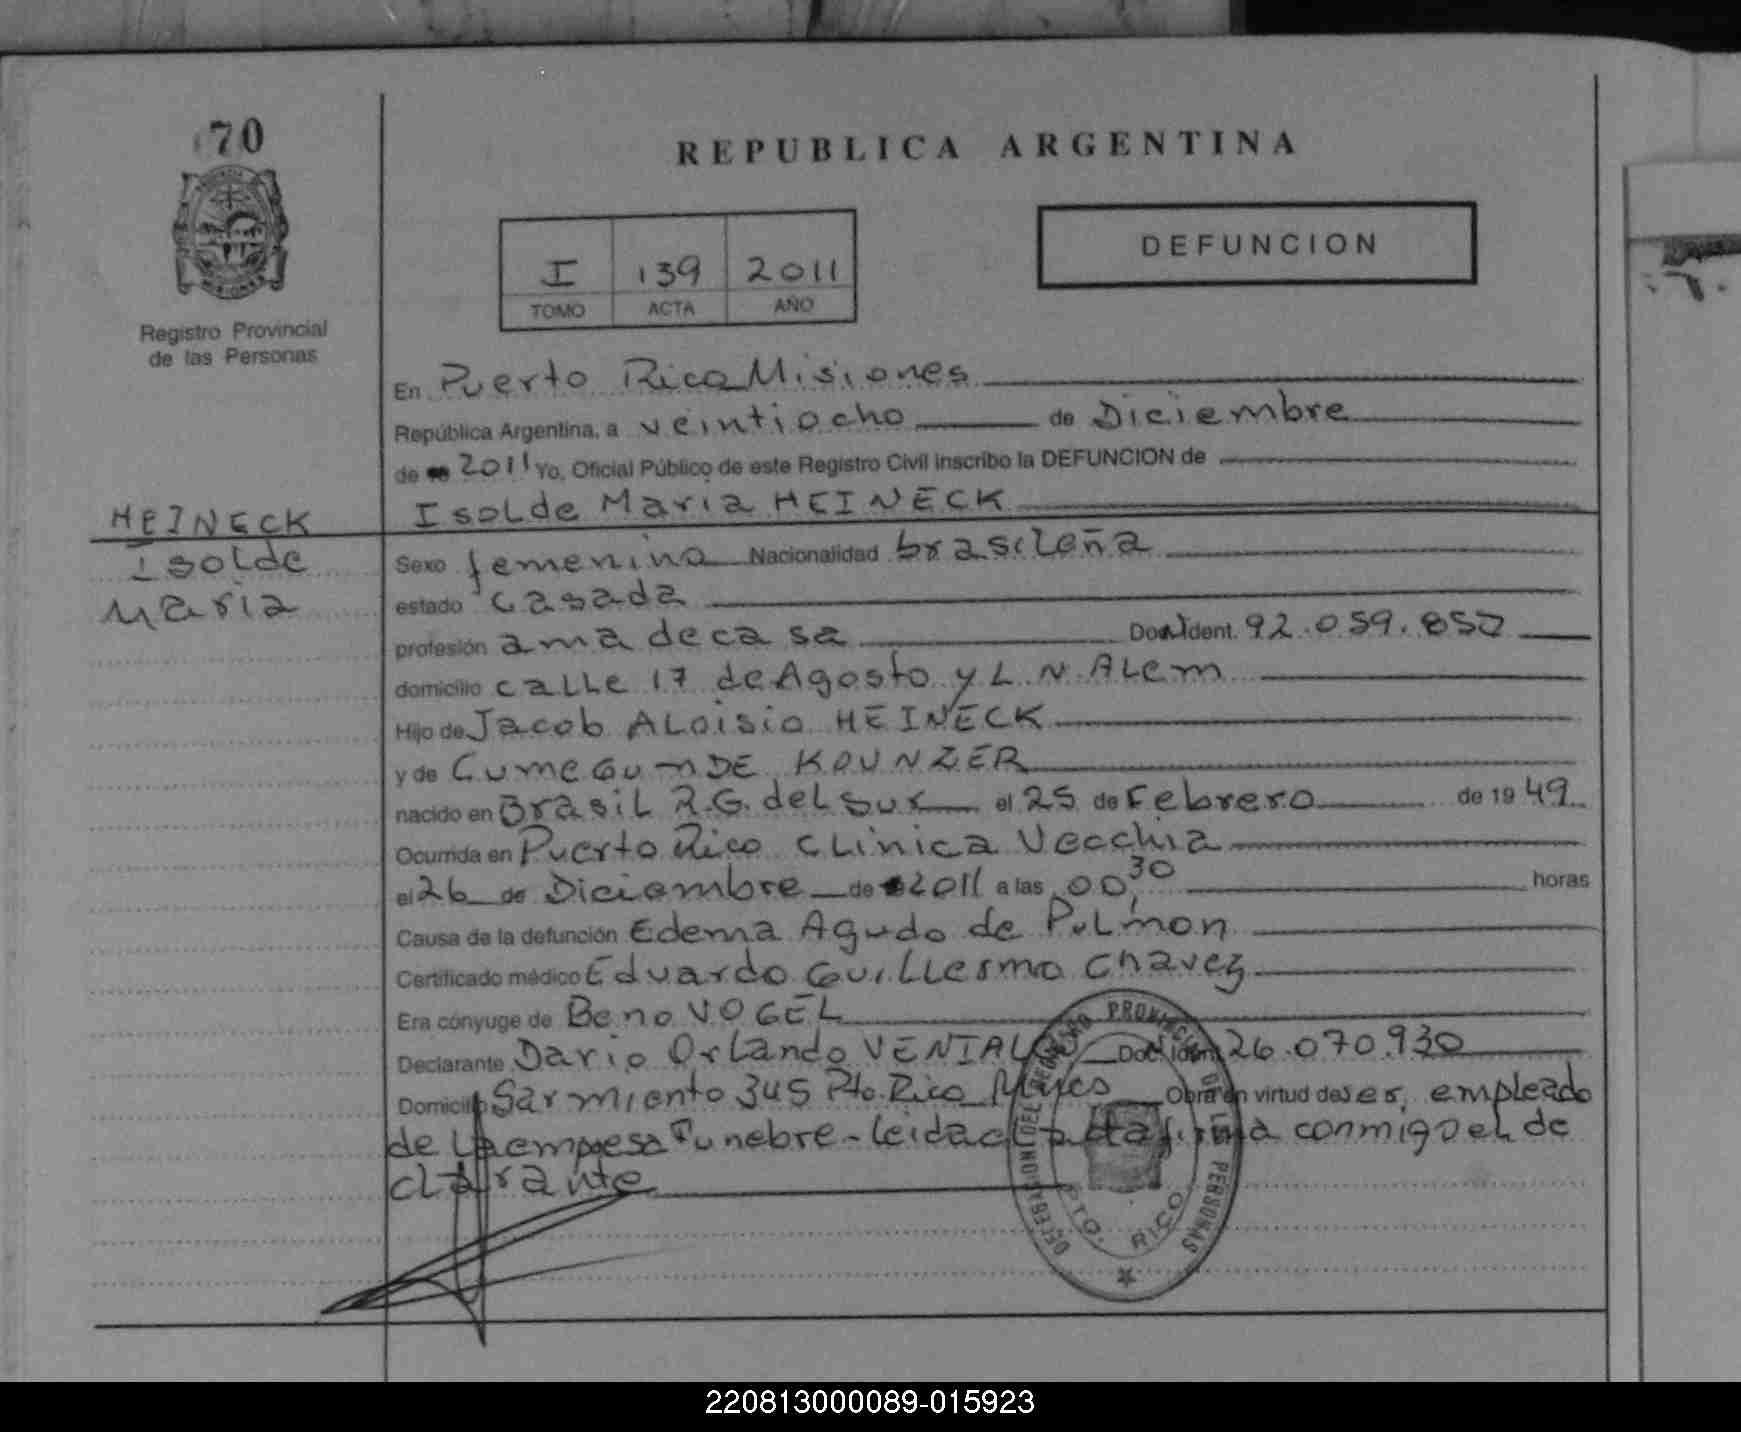 70
REPUBLICA ARGENTINA
DEFUNCION
I 139 2011
TOMO ACTA AÑO
Registro Provincial
de las Personas
En Puerto Rico Misiones
República Argentina, a veintiocho de Diciembre
de 2011 Yo, Oficial Público de este Registro Civil inscribo la DEFUNCION de
Isolde Maria HEINECK
HEINECK
Isolde
Maria
Sexo femenino Nacionalidad brasileña
estado casada
profesión ama de casa Doc. Ident. 92.059.857
domicilio calle 17 de Agosto y L.N.Alem
Hijo de Jacob Aloisio HEINECK
y de CumeGunDE KOUNZER
nacido en Brasil R.G. del Sur el 25 de Febrero de 1949
Ocurrida en Puerto Rico Clinica Vecchia
el 26 de Diciembre de 2011 a las 00,30 horas
Causa de la defunción Edema Agudo de Pulmon
Certificado médico Eduardo Guillermo Chavez
Era cónyuge de Beno VOGEL
Declarante Dario Orlando Doc. Ident. 26.070.930
Domicilio Sarmiento 345 Pto.Rico Mnes Obra en virtud de ser, empleado
de la empresa Funebre - leida el acta firma conmigo el de
clarante
DELEGACION DEL REGISTRO PROVINCIAL DE LAS PERSONAS
PTO. RICO
220813000089-015923